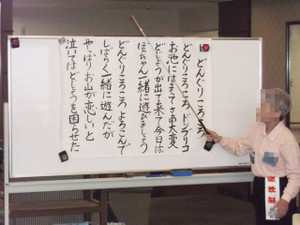 どんぐりころころ
どんぐりころころ ドンブリコ
お池にはまって さあ大変
どじょうが出て来て 今日は
ぼっちゃん一緒に遊びましょう
どんぐりころころ よろこんで
しばらく一緒に遊んだが
やっぱり お山が恋しいと
泣いては どじょうを困らせた